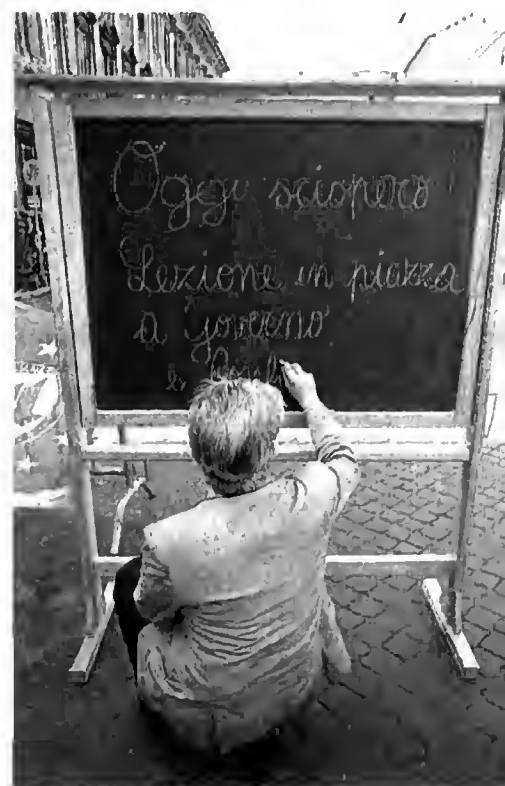 Oggi sciopero
Lezione in piazza
a Governo
e